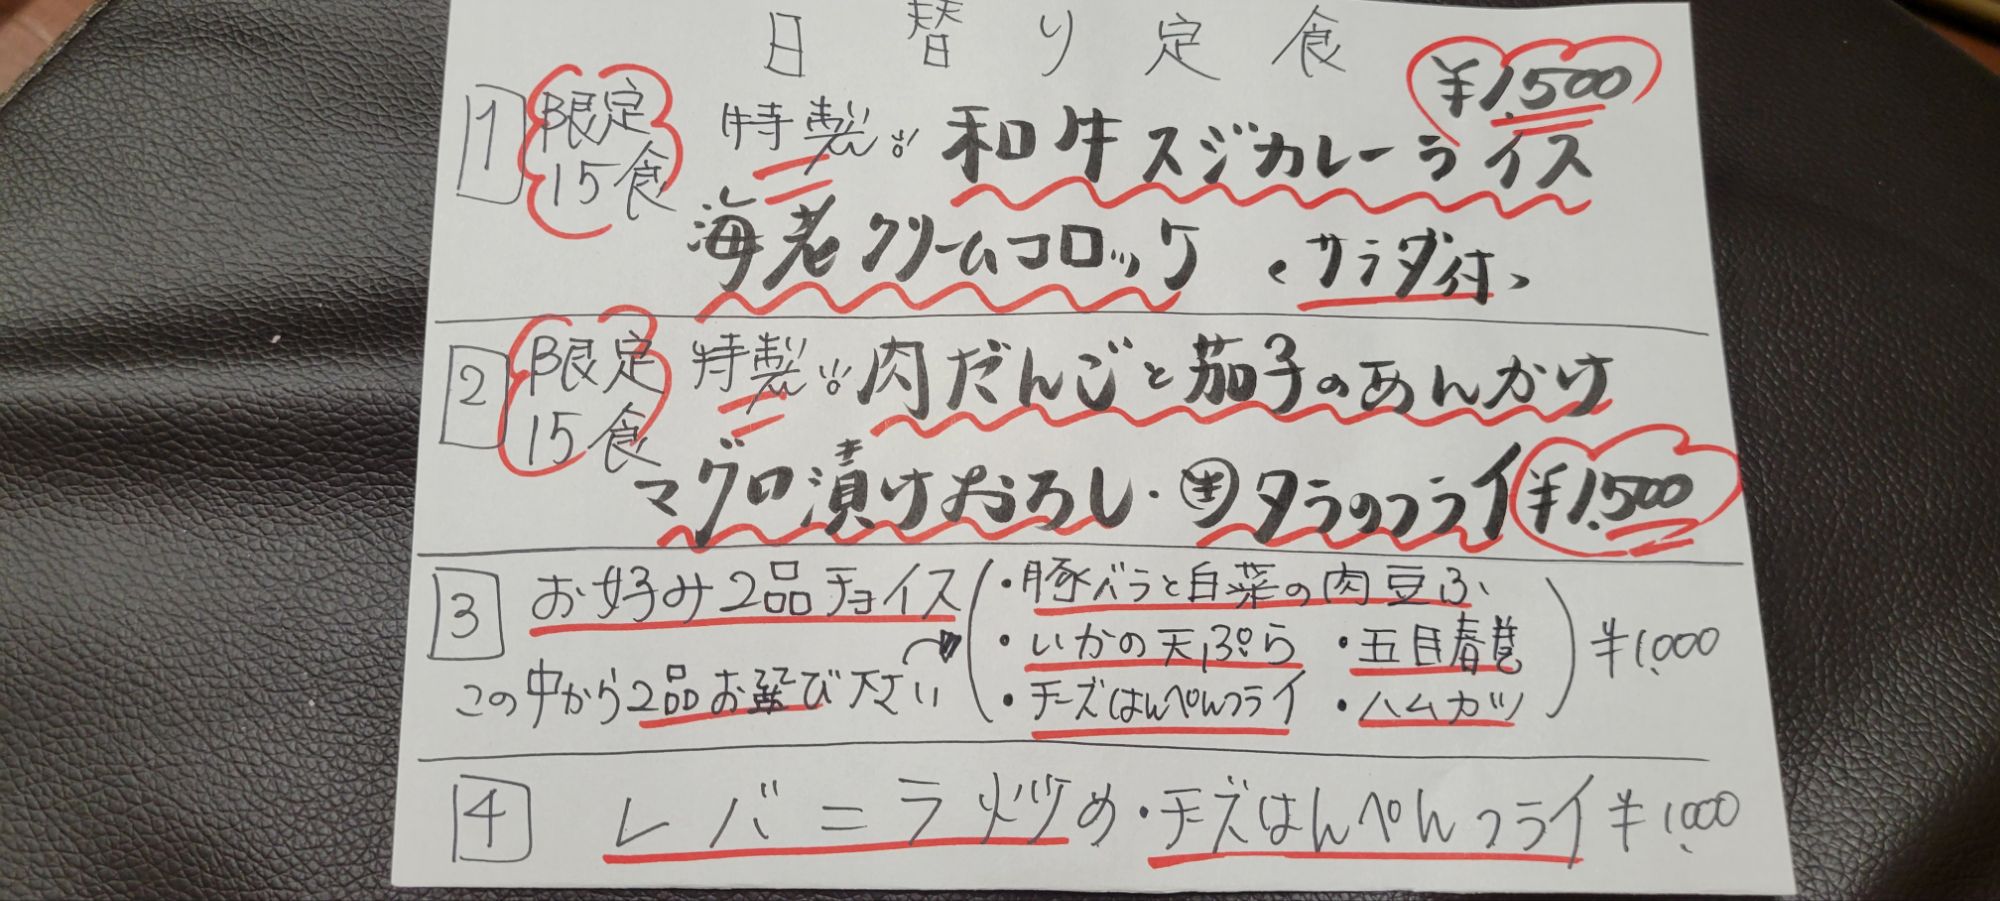 日替り定食
1 限定15食 特製!! 和牛スジカレーライス ¥1,500
海老クリームコロッケ <サラダ付>
2 限定15食 特製!! 肉だんごと茄子のあんかけ
マグロ漬けおろし・生タラのフライ ¥1,500
3 お好み2品チョイス
この中から2品お選び下さい
・豚バラと白菜の肉豆ふ
・いかの天ぷら ・五目春巻
・チーズはんぺんフライ ・ハムカツ
¥1,000
4 レバニラ炒め・チーズはんぺんフライ ¥1,000